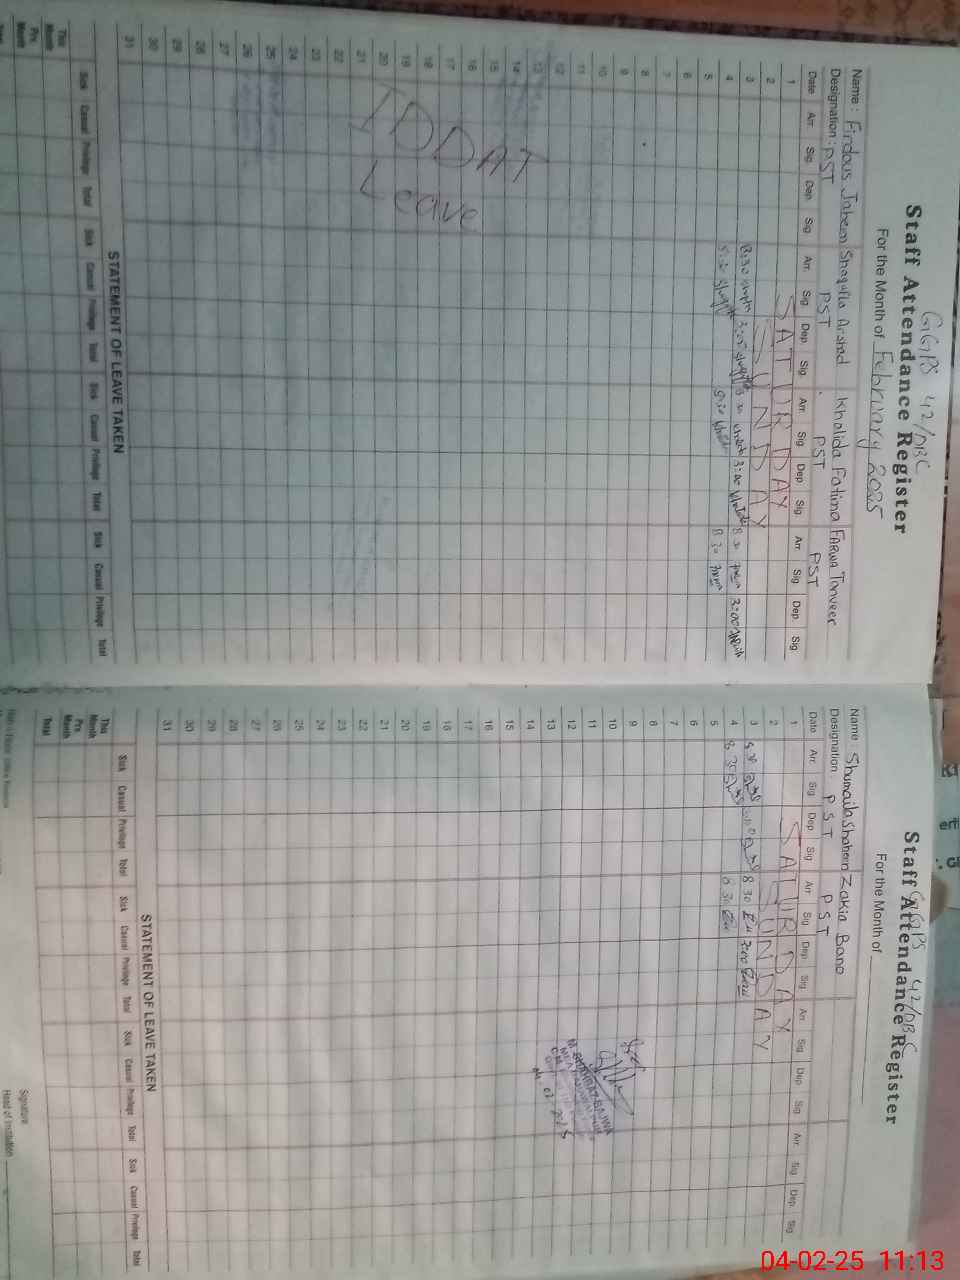 GGPS 42/DBC
Staff Attendance Register
For the Month of February 2025
Name : Firdous Jabeen Shagufta Arshad Khalida Fatima FARWA Tanveer
Designation : PST PST PST PST
Date Arr. Sig Dep. Sig Arr. Sig Dep. Sig Arr. Sig Dep. Sig Arr. Sig Dep. Sig
1 SATURDAY
2 SUNDAY
3 8:30 3:05 8:30 3:00 8:30 3:00
4 8:30 8:30 8:30
5
6
7
8
9
10
11
12
13
14
15
16
17
18
19
20
21
22
23
24
25
26
27
28
29
30
31
IDDAT
Leave
STATEMENT OF LEAVE TAKEN
Sick Casual Privilege Total Sick Casual Privilege Total Sick Casual Privilege Total Sick Casual Privilege Total
This Month
Prv. Month
GGPS 42/DBC
Staff Attendance Register
For the Month of
Name : Shumaila Shaheen Zakia Bano
Designation : PST PST
Date Arr. Sig Dep. Sig Arr. Sig Dep. Sig Arr. Sig Dep. Sig Arr. Sig Dep. Sig
1 SATURDAY
2 SUNDAY
3 8 30 8 30 3:00
4 8 30 8 30
5
6
7
8
9
10
11
12
13
14
15
16
17
18
19
20
21
22
23
24
25
26
27
28
29
30
31
STATEMENT OF LEAVE TAKEN
Sick Casual Privilege Total Sick Casual Privilege Total Sick Casual Privilege Total Sick Casual Privilege Total
This Month
Prv. Month
Total
Signature
Head of Institution
04-02-25 11:13